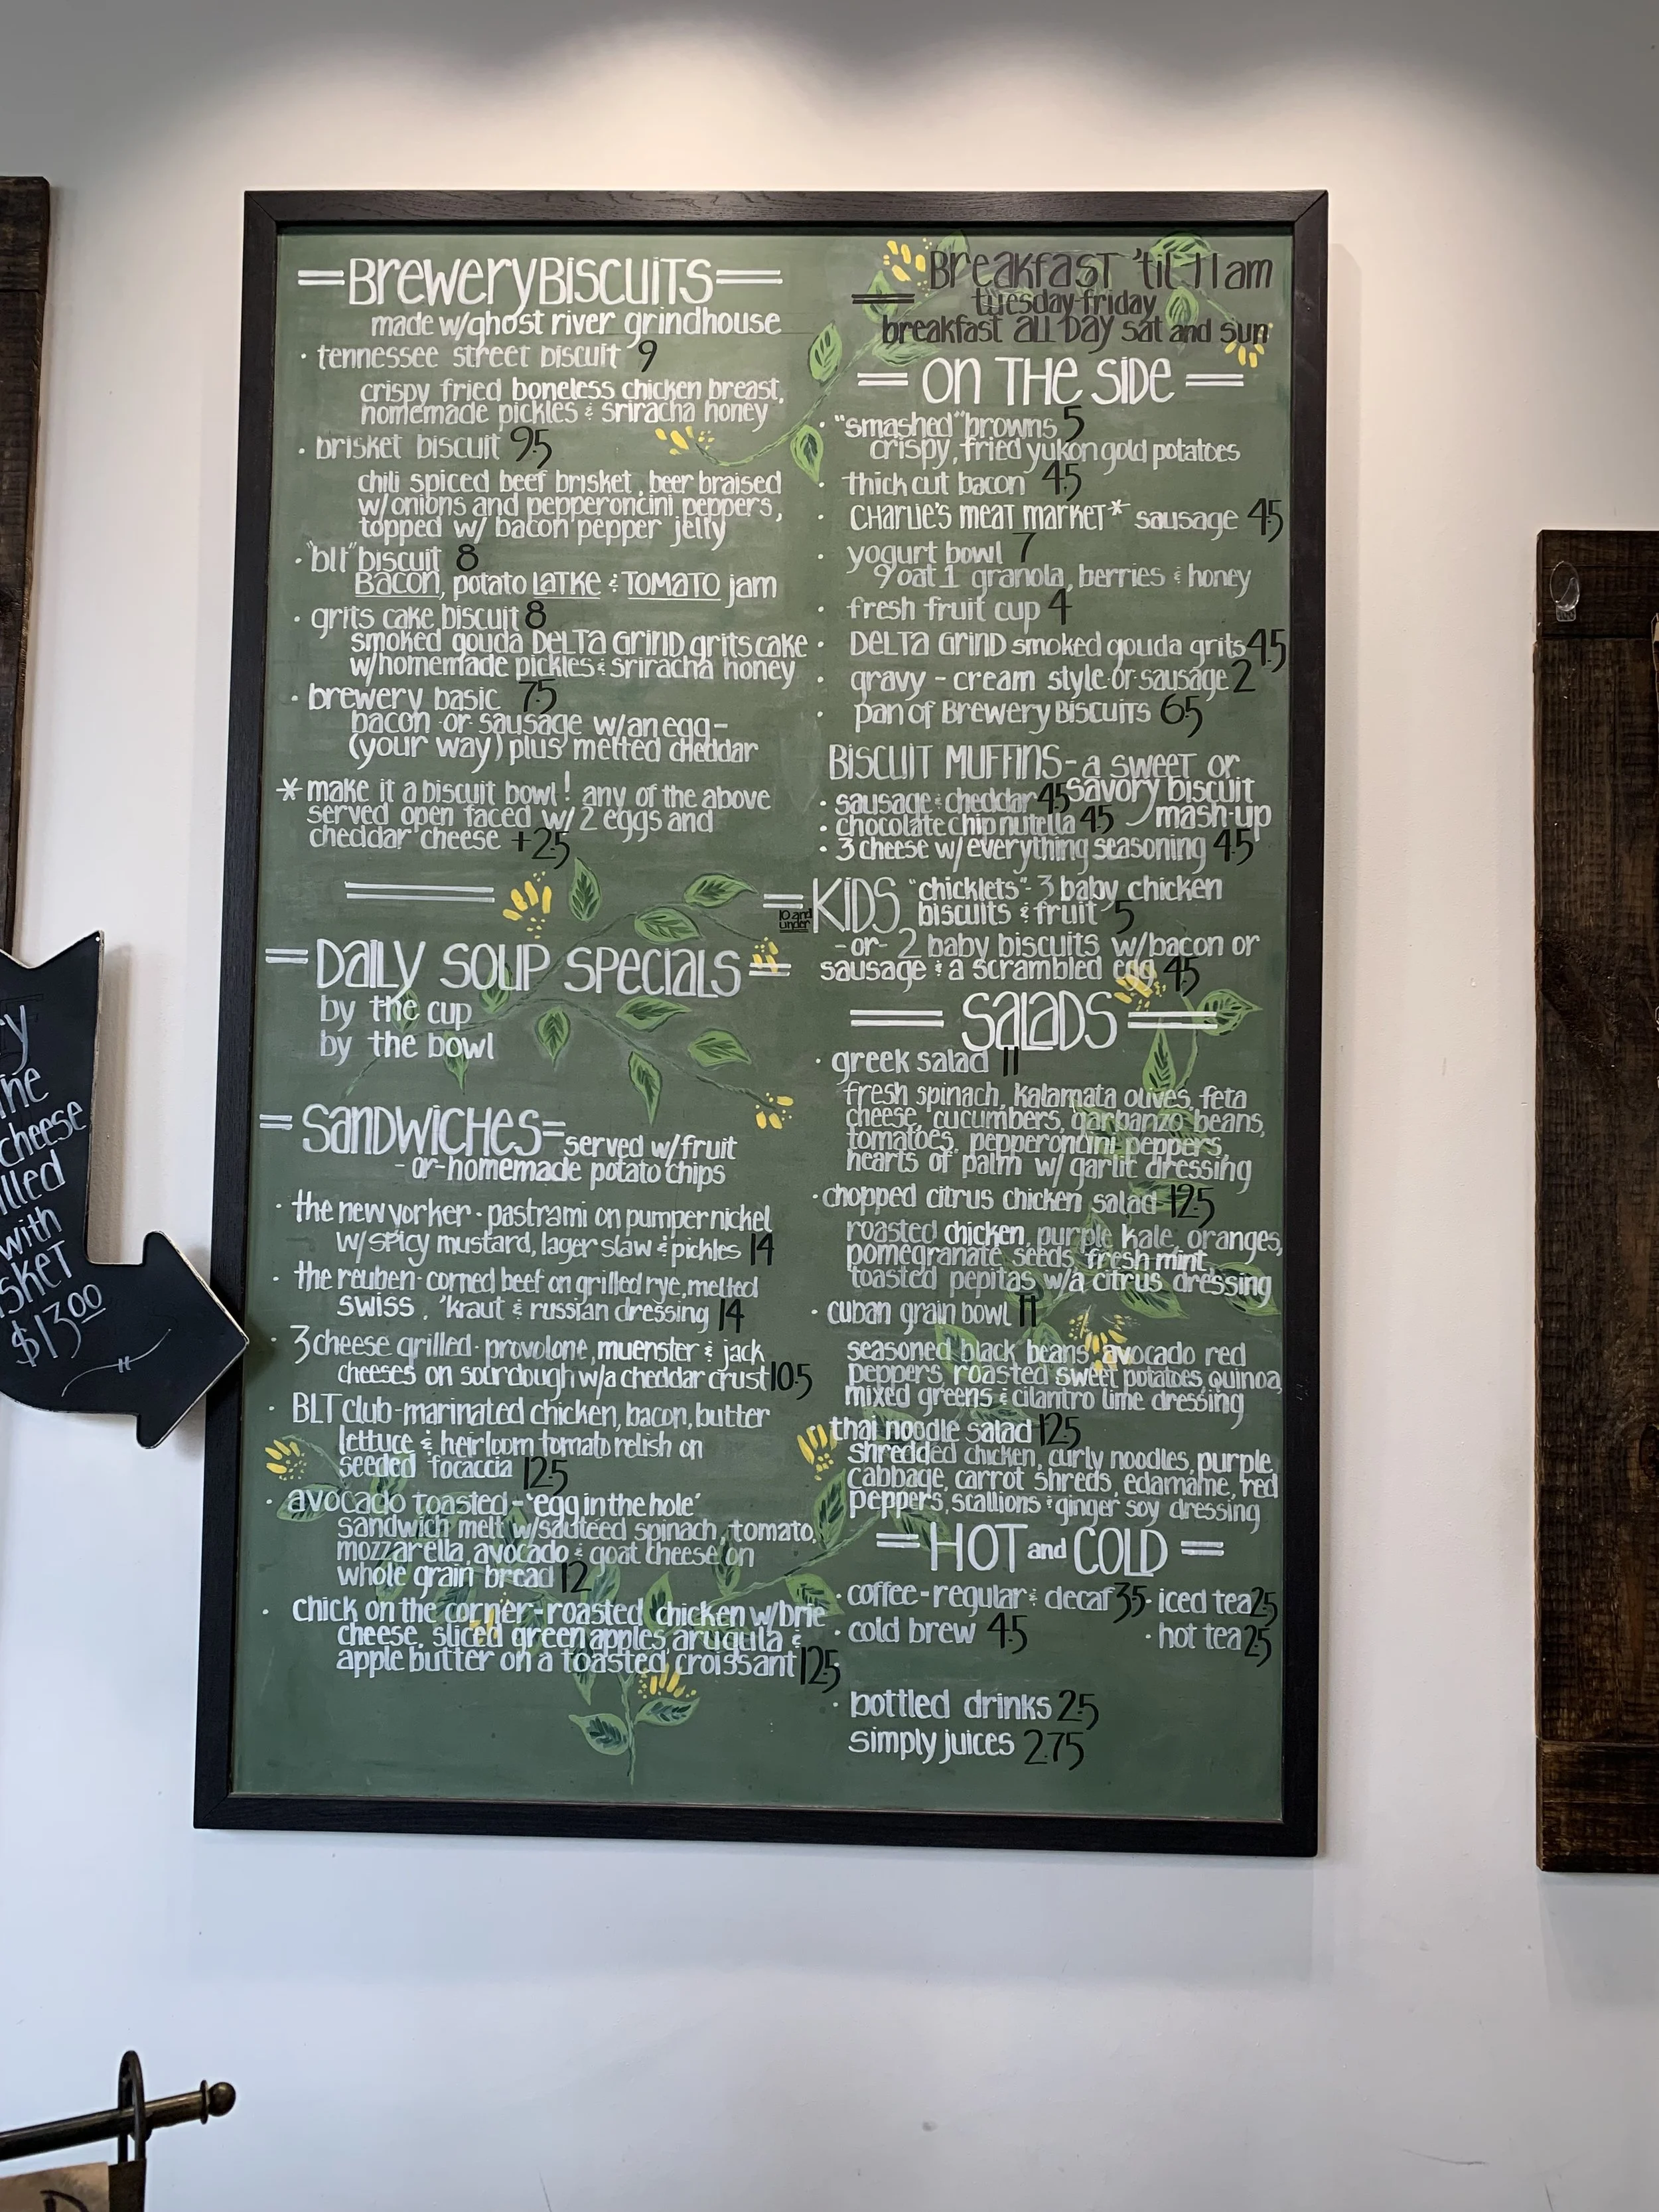 BREWERY BISCUITS
made w/ghost river grindhouse
· tennessee street biscuit 9
crispy fried boneless chicken breast,
homemade pickles & sriracha honey
· brisket biscuit 9.5
chili spiced beef brisket, beer braised
w/onions and pepperoncini peppers,
topped w/ bacon pepper jelly
· "blt" biscuit 8
BACON, potato LATKE & TOMATO jam
· grits cake biscuit 8
smoked gouda DELTA GRIND grits cake
w/homemade pickles & sriracha honey
· brewery basic 7.5
bacon or sausage w/an egg-
(your way) plus melted cheddar
* make it a biscuit bowl! any of the above
served open faced w/ 2 eggs and
cheddar cheese +2.5
DAILY SOUP SPECIALS
by the cup
by the bowl
SANDWICHES served w/fruit
-or-homemade potato chips
· the new yorker - pastrami on pumpernickel
w/spicy mustard, lager slaw & pickles 14
· the reuben - corned beef on grilled rye, melted
swiss, 'kraut & russian dressing 14
· 3 cheese grilled - provolone, muenster & jack
cheeses on sourdough w/a cheddar crust 10.5
· BLT club - marinated chicken, bacon, butter
lettuce & heirloom tomato relish on
seeded focaccia 12.5
· avocado toasted - 'egg in the hole'
sandwich melt w/sautéed spinach, tomato,
mozzarella, avocado & goat cheese on
whole grain bread 12
· chick on the corner - roasted chicken w/brie
cheese, sliced green apples, arugula &
apple butter on a toasted croissant 12.5
BREAKFAST 'til 11 am
tuesday-friday
breakfast ALL DAY sat and sun
ON THE SIDE
· "smashed" browns 5
crispy, fried yukon gold potatoes
· thick cut bacon 4.5
· CHARLIE'S MEAT MARKET* sausage 4.5
· yogurt bowl 7
9 oat 1 granola, berries & honey
· fresh fruit cup 4
· DELTA GRIND smoked gouda grits 4.5
· gravy - cream style or sausage 2
· pan of BREWERY BISCUITS 6.5
BISCUIT MUFFINS - a sweet or
savory biscuit
mash-up
· sausage & cheddar 4.5
· chocolate chip nutella 4.5
· 3 cheese w/ everything seasoning 4.5
KIDS "chicklets" - 3 baby chicken
10 and
under
biscuits & fruit 5
-or- 2 baby biscuits w/bacon or
sausage & a scrambled egg 4.5
SALADS
· greek salad 11
fresh spinach, kalamata olives, feta
cheese, cucumbers, garbanzo beans,
tomatoes, pepperoncini peppers,
hearts of palm w/ garlic dressing
· chopped citrus chicken salad 12.5
roasted chicken, purple kale, oranges,
pomegranate seeds, fresh mint,
toasted pepitas w/a citrus dressing
· cuban grain bowl 11
seasoned black beans, avocado red
peppers, roasted sweet potatoes, quinoa,
mixed greens & cilantro lime dressing
thai noodle salad 12.5
shredded chicken, curly noodles, purple
cabbage, carrot shreds, edamame, red
peppers, scallions & ginger soy dressing
HOT and COLD
· coffee - regular & decaf 3.5 · iced tea 2.5
· cold brew 4.5 · hot tea 2.5
· bottled drinks 2.5
simply juices 2.75
cheese
with
$13.00